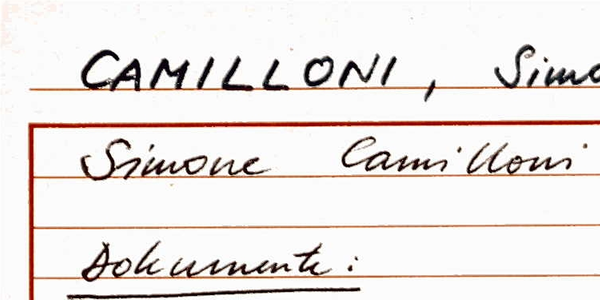 CAMILLONI, Simo
Simone Camilloni
Dokumente: